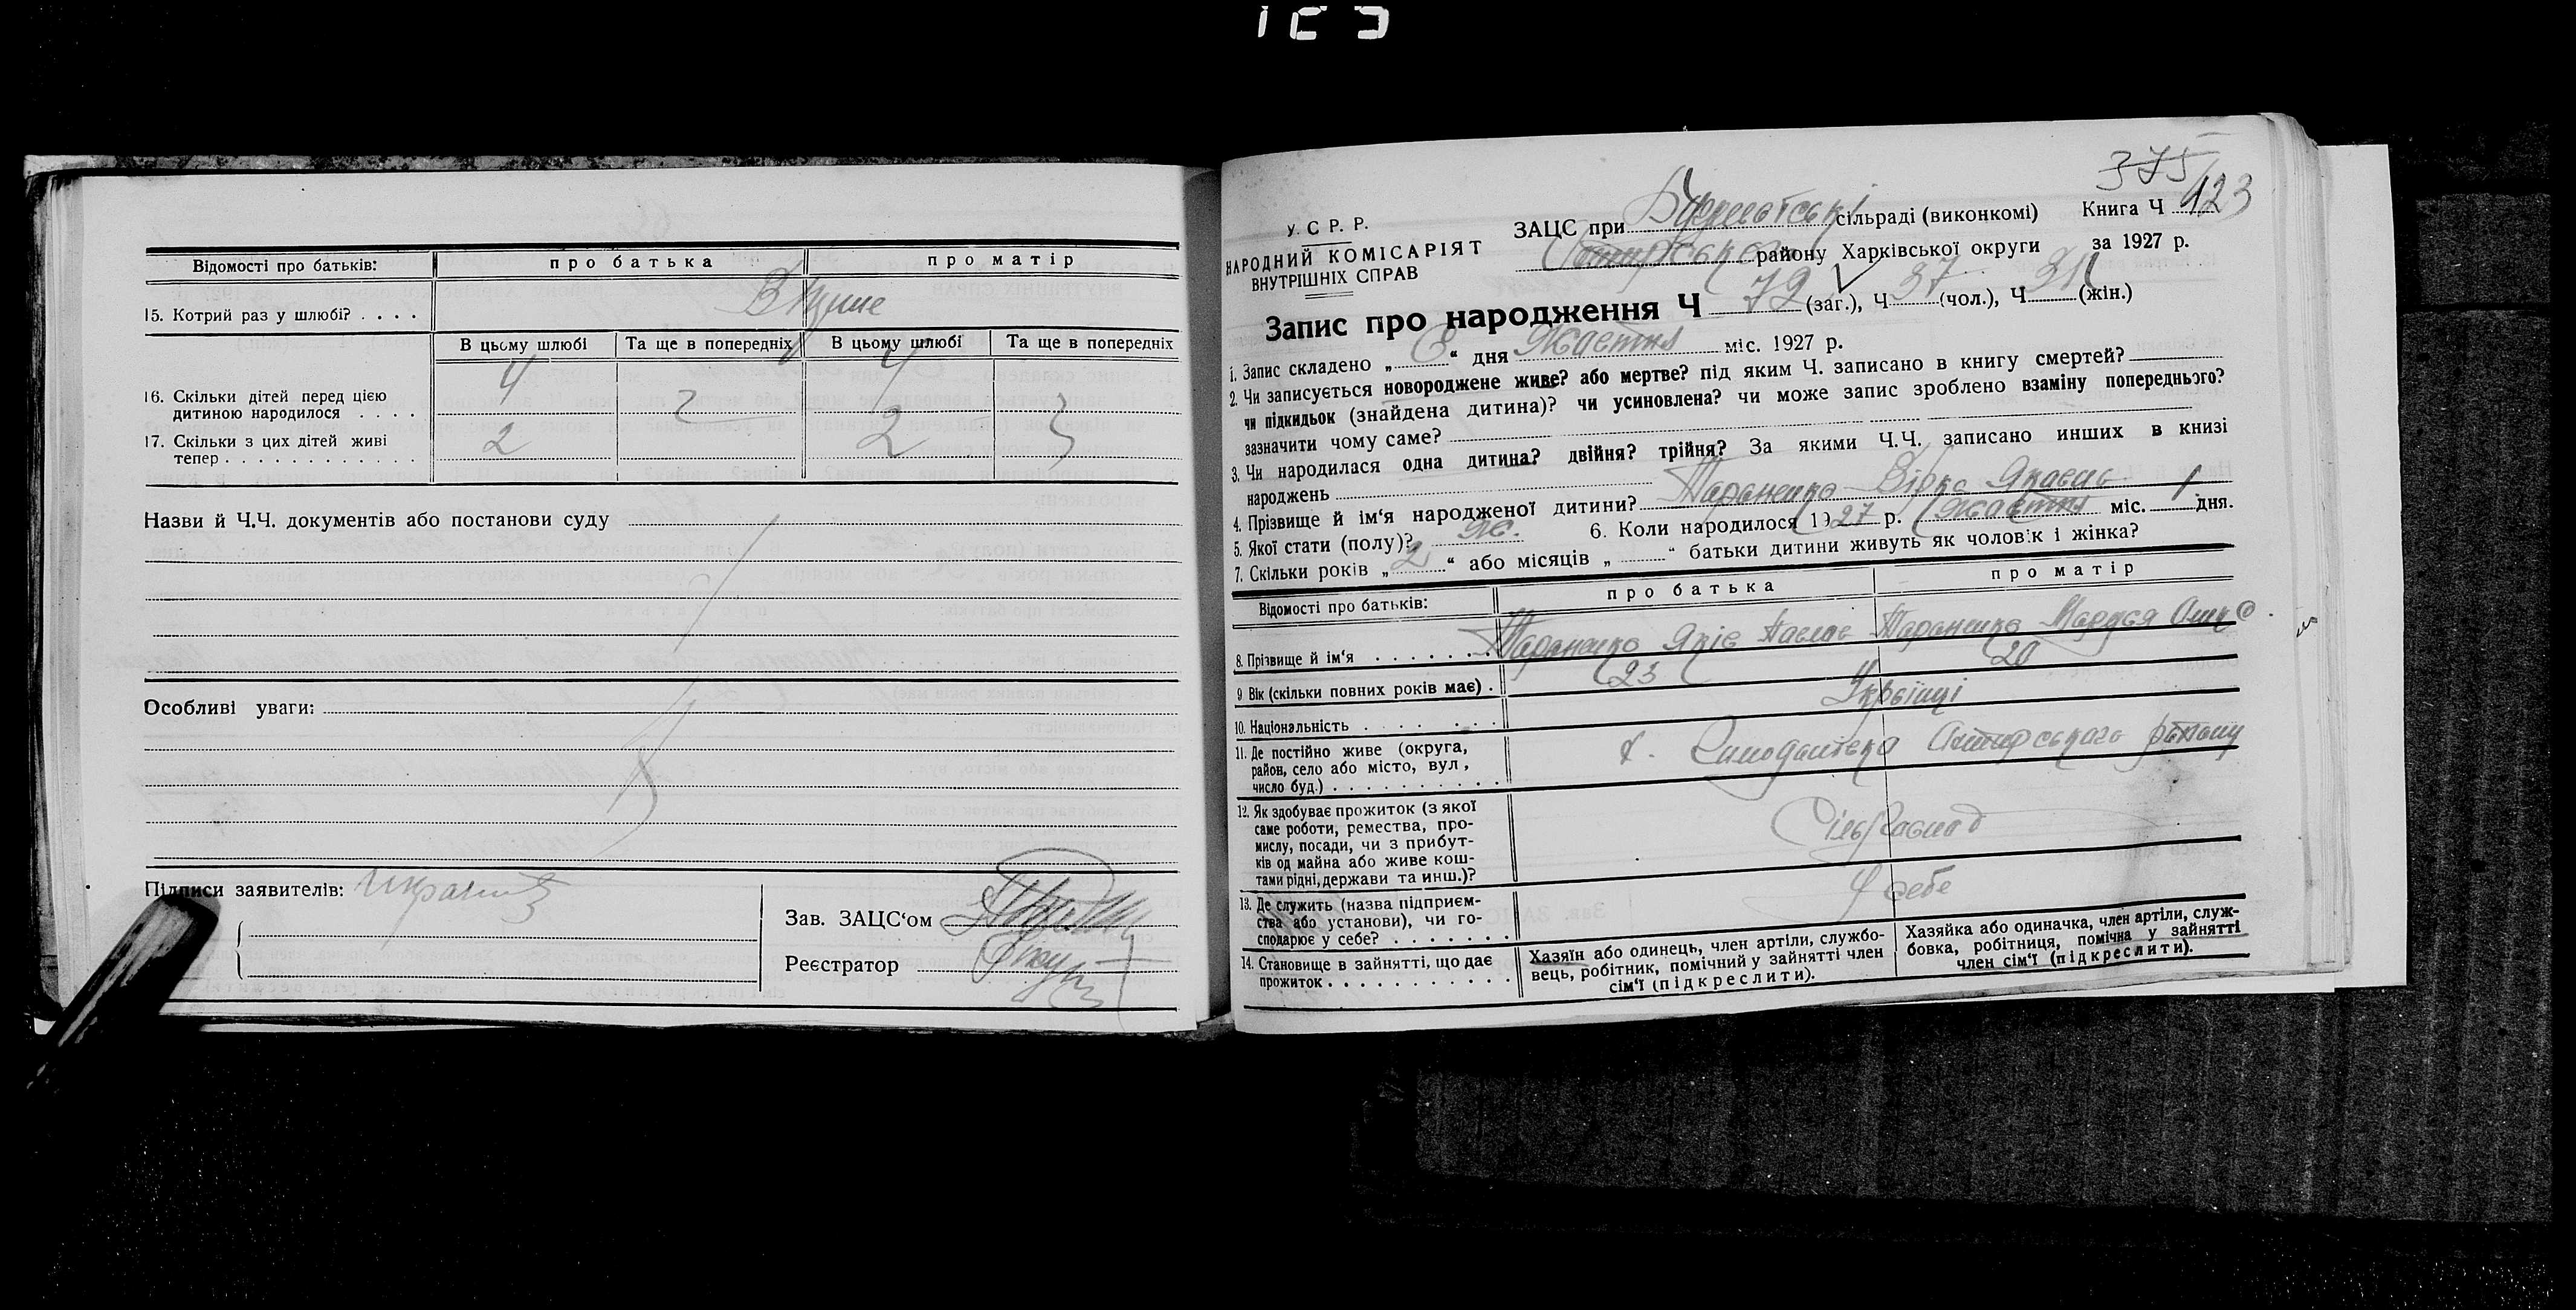 Відомості про батьків: про батька про матір
15. Котрий раз у шлюбі? . . . .
В цьому шлюбі Та ще в попередніх В цьому шлюбі Та ще в попередніх
16. Скільки дітей перед цією 4 4
дитиною народилося . . . .
17. Скільки з цих дітей живі 2 2
тепер . . . . . . . . . . . .
Назви й Ч.Ч. документів або постанови суду
Особливі уваги:
Підписи заявителів:
Зав. ЗАЦС'ом
Реєстратор
375
123
У. С. Р. Р.
НАРОДНИЙ КОМІСАРІЯТ
ВНУТРІШНІХ СПРАВ
ЗАЦС при сільраді (виконкомі) Книга Ч
району Харківської округи за 1927 р.
Запис про народження Ч 72 (заг.), Ч 37 (чол.), Ч (жін.)
1. Запис складено „ “ дня Жовтня міс. 1927 р.
2. Чи записується новороджене живе? або мертве? під яким Ч. записано в книгу смертей?
чи підкидьок (знайдена дитина)? чи усиновлена? чи може запис зроблено взаміну попереднього?
зазначити чому саме?
3. Чи народилася одна дитина? двійня? трійня? За якими Ч.Ч. записано инших в книзі
народжень
4. Прізвище й ім'я народженої дитини? Тараненко Віра Яковив
5. Якої стати (полу)? ж. 6. Коли народилося 1927 р. Жовтня міс. 1 дня.
7. Скільки років „ 2 “ або місяців „ “ батьки дитини живуть як чоловік і жінка?
Відомості про батьків: про батька про матір
8. Прізвище й ім'я . . . . . . . Тараненко Яків Павлов Тараненко Маруся
9 Вік (скільки повних років має) . 23 20
10. Національність . . . . . . . Українці
11. Де постійно живе (округа,
район, село або місто, вул,
число буд.) . . . . . . . . . . х. району
12. Як здобуває прожиток (з якої
саме роботи, ремества, про-
мислу, посади, чи з прибут-
ків од майна або живе кош-
тами рідні, держави та инш.)?
13. Де служить (назва підприєм-
ства або установи), чи го-
сподарює у себе? . . . . . . . У себе
14. Становище в зайнятті, що дає
прожиток . . . . . . . . . . .
Хазяїн або одинець, член артіли, службо-
вець, робітник, помічний у зайнятті член
сім'ї (підкреслити).
Хазяйка або одиначка, член артіли, служ-
бовка, робітниця, помічна у зайнятті
член сім'ї (підкреслити).